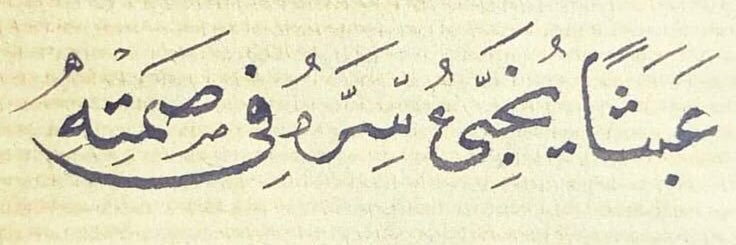 عَبَثًا يُخَبِّئُ سِرَّهُ فِي صَمْتِهِ